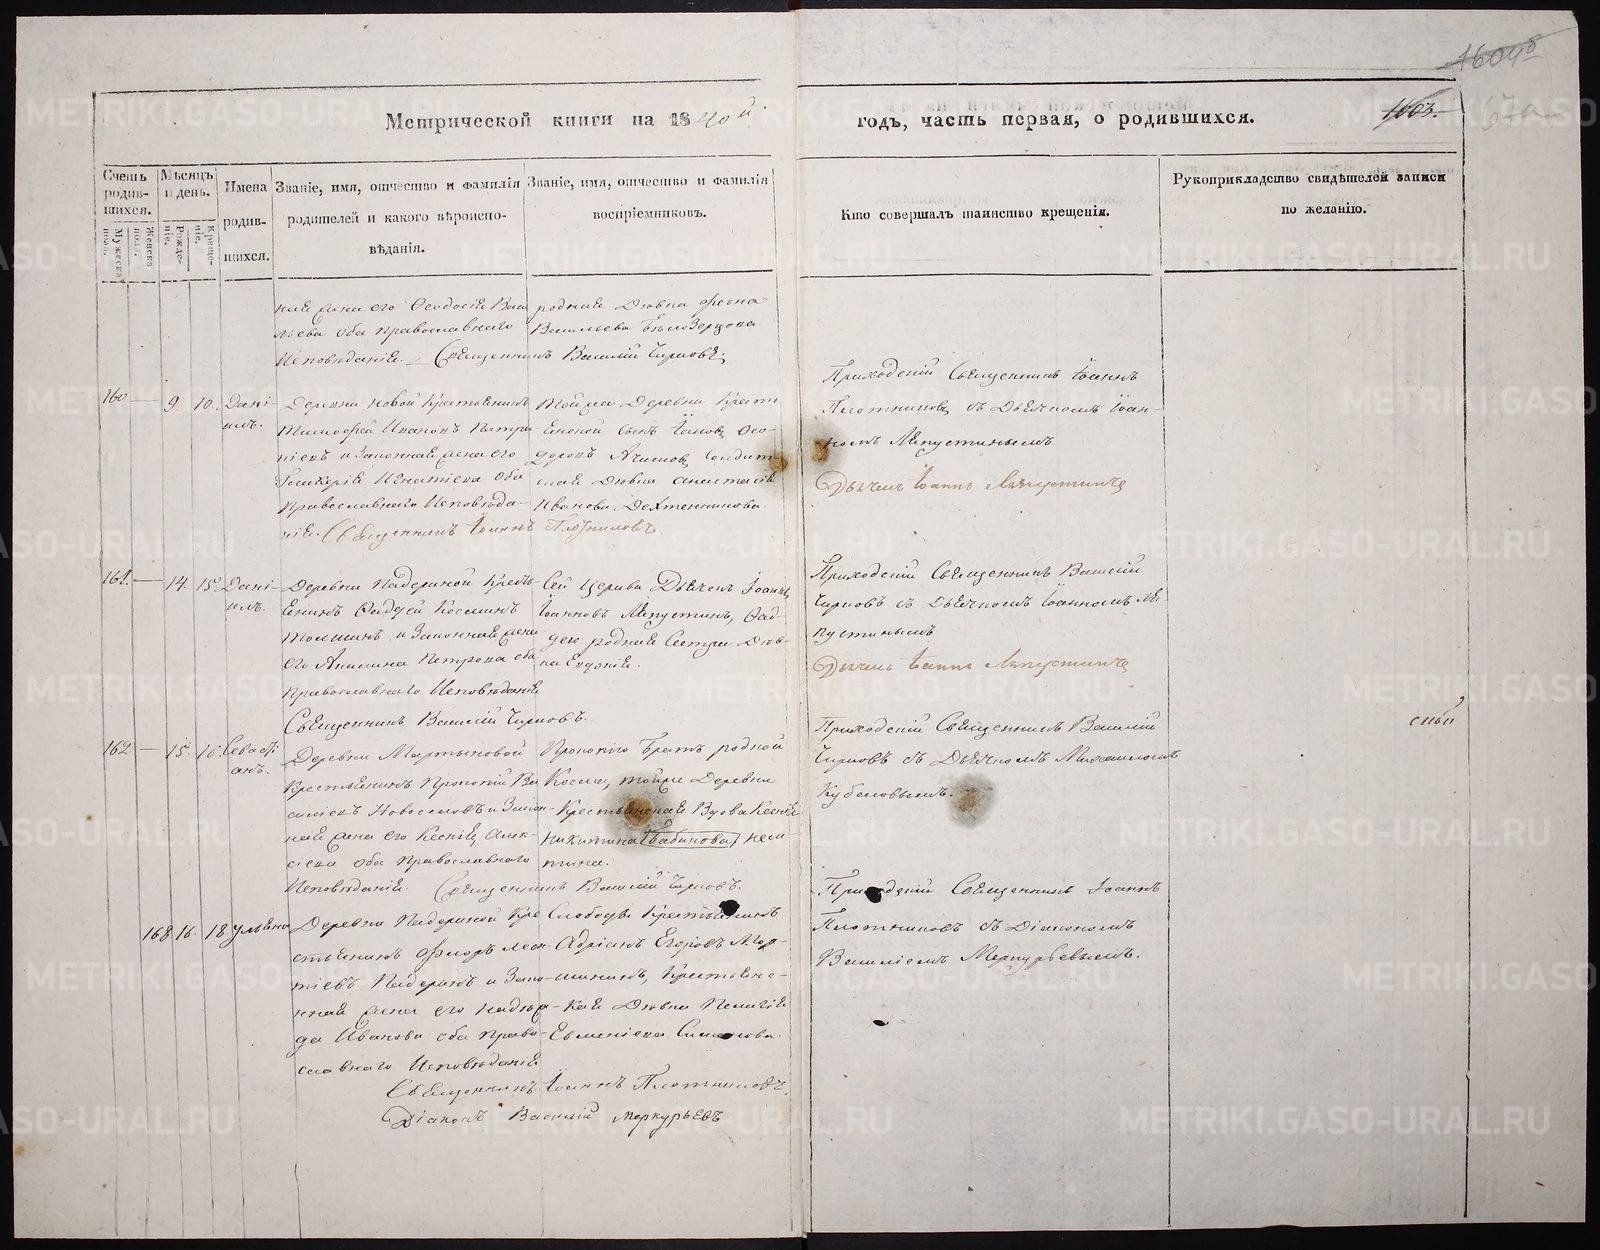 1604 об
Метрической книги на 1840й
годъ, часть первая, о родившихся.
1603.
67а
Счетъ родившихся.
Мужеска пола.
Женска пола.
Мѣсяцъ и день.
Рожденіе.
Крещеніе.
Имена родившихся.
Званіе, имя, отчество и фамилія
родителей и какого вѣроиспо-
вѣданія.
Званіе, имя, отчество и фамилія
воспріемниковъ.
Кто совершалъ таинство крещенія.
Рукоприкладство свидѣтелей записи
по желанію.
ная жена его Ѳеодосія Васи
льева оба православнаго
Исповѣданія. Священникъ Василій Чирковъ
родная Дѣвка
Васильева Бѣлозерцова
160 9. 10. Дані-
илъ.
Деревни Новой Крестьянинъ
Тимоѳей Ивановъ Петри
и Законная жена его
Гликерія Игнатіева оба
православнаго Исповѣда-
нія. Священникъ Іоаннъ Плотниковъ
той же Деревни Крести
янской сынъ Ѳео-
доровъ солдат-
ская Дѣвка Анастасія
Иванова
Приходскій Священникъ Іоаннъ
Плотниковъ съ Дьячкомъ Іоан-
номъ Ляпустинымъ
Дьячекъ Іоаннъ Ляпустинъ
161. 14. 15. Дані-
илъ.
Деревни Падериной Кресть-
янинъ Ѳадѣй Косминъ
и Законная жена
его Акилина Петрова оба
православнаго Исповѣданія
Священникъ Василій Чирковъ.
Сей Церкви Дьячекъ Іоаннъ
Іоанновъ Ляпустинъ, Ѳад-
дея родная Сестра Дѣв-
ка Евдокія.
Приходскій Священникъ Василій
Чирковъ съ Дьячкомъ Іоанномъ Ля-
пустинымъ
Дьячекъ Іоаннъ Ляпустинъ
162. 15. 16. Севасті-
анъ.
Деревни Мартыновой
Крестьянинъ Прокопій Ва
силіевъ Новоселовъ и Закон-
ная жена его Ксенія Алек-
сіева оба православнаго
Исповѣданія. Священникъ Василій Чирковъ.
Прокопія братъ родной
Косма, тойже Деревни
Крестьянская Вдова Ксенія
Никитина Бабинова
Приходскій Священникъ Василій
Чирковъ съ Дьячкомъ Михаиломъ
Кубасовымъ.
168. 16. 18. Ульяна
Деревни Падериной Кре
стьянинъ Флоръ Леон-
тіевъ Падеринъ и Зако-
нная жена его Надѣж-
да Иванова оба право-
славнаго Исповѣданія
Слободы Крестьянинъ
Адріанъ Егоровъ Мор-
шининъ, Крестьянс-
кая Дѣвка Пелагія
Евменіева Симонова.
Священникъ Іоаннъ Плотниковъ.
Діаконъ Василій Меркурьевъ
Приходскій Священникъ Іоаннъ
Плотниковъ съ Діакономъ
Василіемъ Меркурьевымъ.